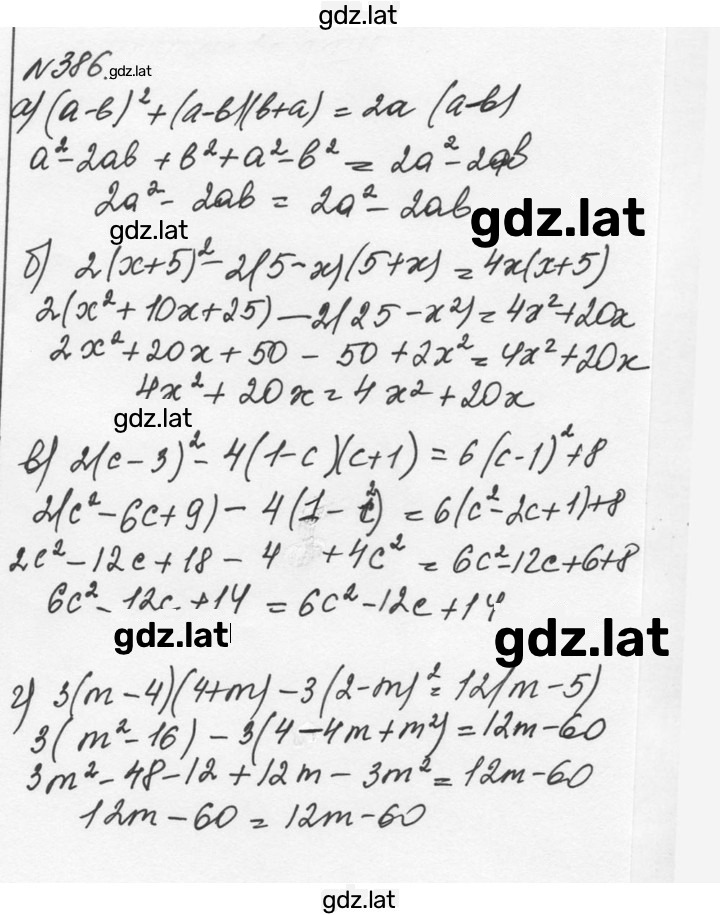 gdz.lat
N 386. gdz.lat
а) (a-b)² + (a-b)(b+a) = 2a (a-b)
a² - 2ab + b² + a² - b² = 2a² - 2ab
2a² - 2ab = 2a² - 2ab
gdz.lat
gdz.lat
б) 2(x+5)² - 2(5-x)(5+x) = 4x(x+5)
2(x² + 10x + 25) - 2(25 - x²) = 4x² + 20x
2x² + 20x + 50 - 50 + 2x² = 4x² + 20x
4x² + 20x = 4x² + 20x
gdz.lat
в) 2(c-3)² - 4(1-c)(c+1) = 6(c-1)² + 8
2(c² - 6c + 9) - 4(1 - c²) = 6(c² - 2c + 1) + 8
2c² - 12c + 18 - 4 + 4c² = 6c² - 12c + 6 + 8
6c² - 12c + 14 = 6c² - 12c + 14
gdz.lat
gdz.lat
г) 3(m-4)(4+m) - 3(2-m)² = 12(m-5)
3(m² - 16) - 3(4 - 4m + m²) = 12m - 60
3m² - 48 - 12 + 12m - 3m² = 12m - 60
12m - 60 = 12m - 60
gdz.lat